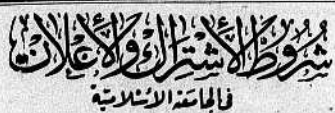 شروط الأشتراك والأعلان
في الجامعة الاسلامية